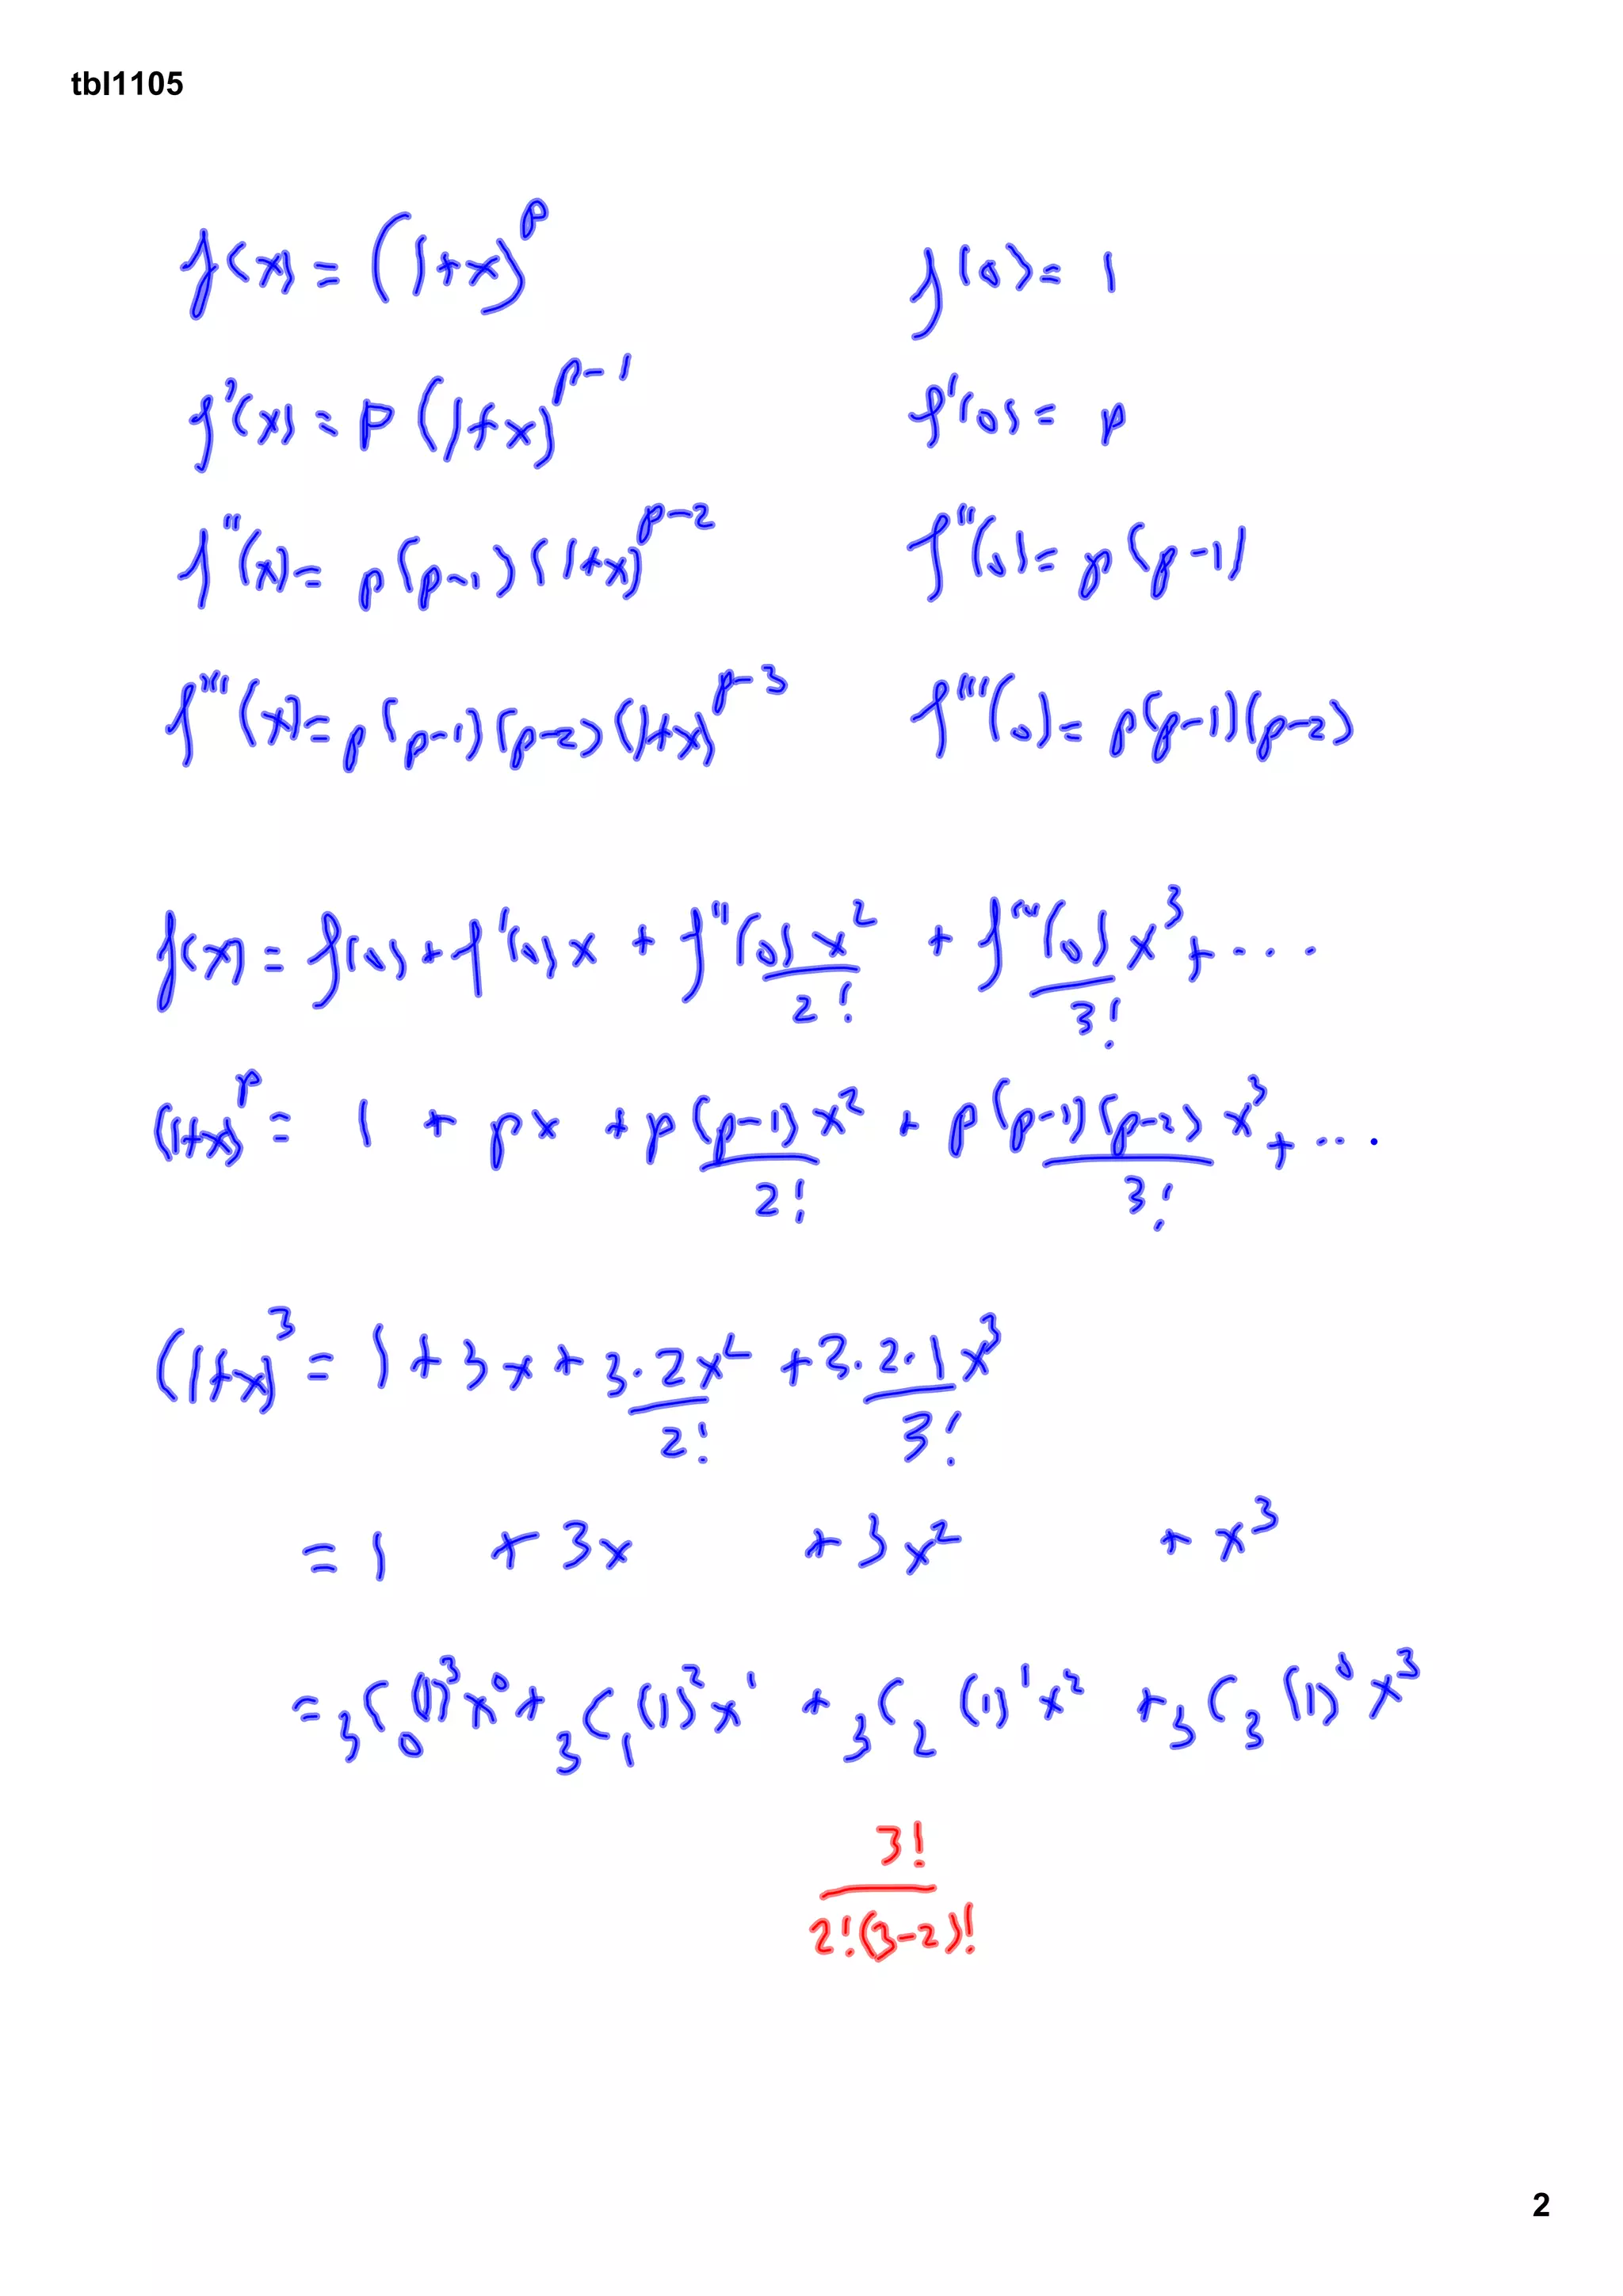 tbl1105
f(x) = (1+x)^p f(0) = 1
f'(x) = p(1+x)^{p-1} f'(0) = p
f''(x) = p(p-1)(1+x)^{p-2} f''(0) = p(p-1)
f'''(x) = p(p-1)(p-2)(1+x)^{p-3} f'''(0) = p(p-1)(p-2)
f(x) = f(0) + f'(0)x + f''(0)x^2/2! + f'''(0)x^3/3! + ...
(1+x)^p = 1 + px + p(p-1)x^2/2! + p(p-1)(p-2)x^3/3! + ....
(1+x)^3 = 1 + 3x + 3·2x^2/2! + 3·2·1x^3/3!
= 1 + 3x + 3x^2 + x^3
= ₃C₀(1)^3x^0 + ₃C₁(1)^2x^1 + ₃C₂(1)^1x^2 + ₃C₃(1)^0x^3
3!
2!(3-2)!
2